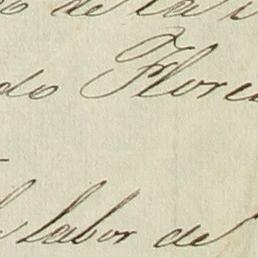 de la
do Flore
labor de